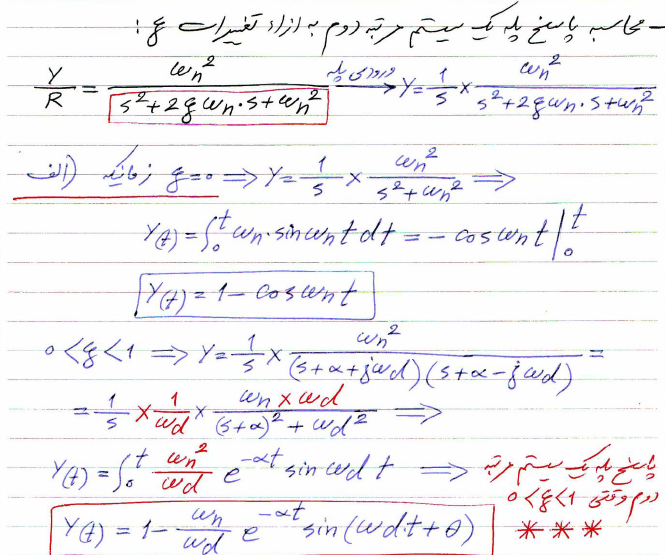 - محاسبه پاسخ پله یک سیستم مرتبه دوم به ازاء تغییرات ξ :
Y/R = ωn²/(s²+2ξωn·s+ωn²) ورودی پله → Y = 1/s × ωn²/(s²+2ξωn·s+ωn²)
الف) زمانیکه ξ=0 ⇒ Y = 1/s × ωn²/(s²+ωn²) ⇒
Y(t) = ∫₀ᵗ ωn·sin ωn t dt = - cos ωn t |₀ᵗ
Y(t) = 1 - cos ωn t
0<ξ<1 ⇒ Y = 1/s × ωn²/((s+α+jωd)(s+α-jωd)) =
= 1/s × 1/ωd × ωn×ωd/((s+α)²+ωd²) ⇒
Y(t) = ∫₀ᵗ ωn²/ωd e^(-αt) sin ωd t ⇒ پاسخ پله یک سیستم مرتبه
دوم وقتی 0<ξ<1
Y(t) = 1 - ωn/ωd e^(-αt) sin(ωd t + θ) ***